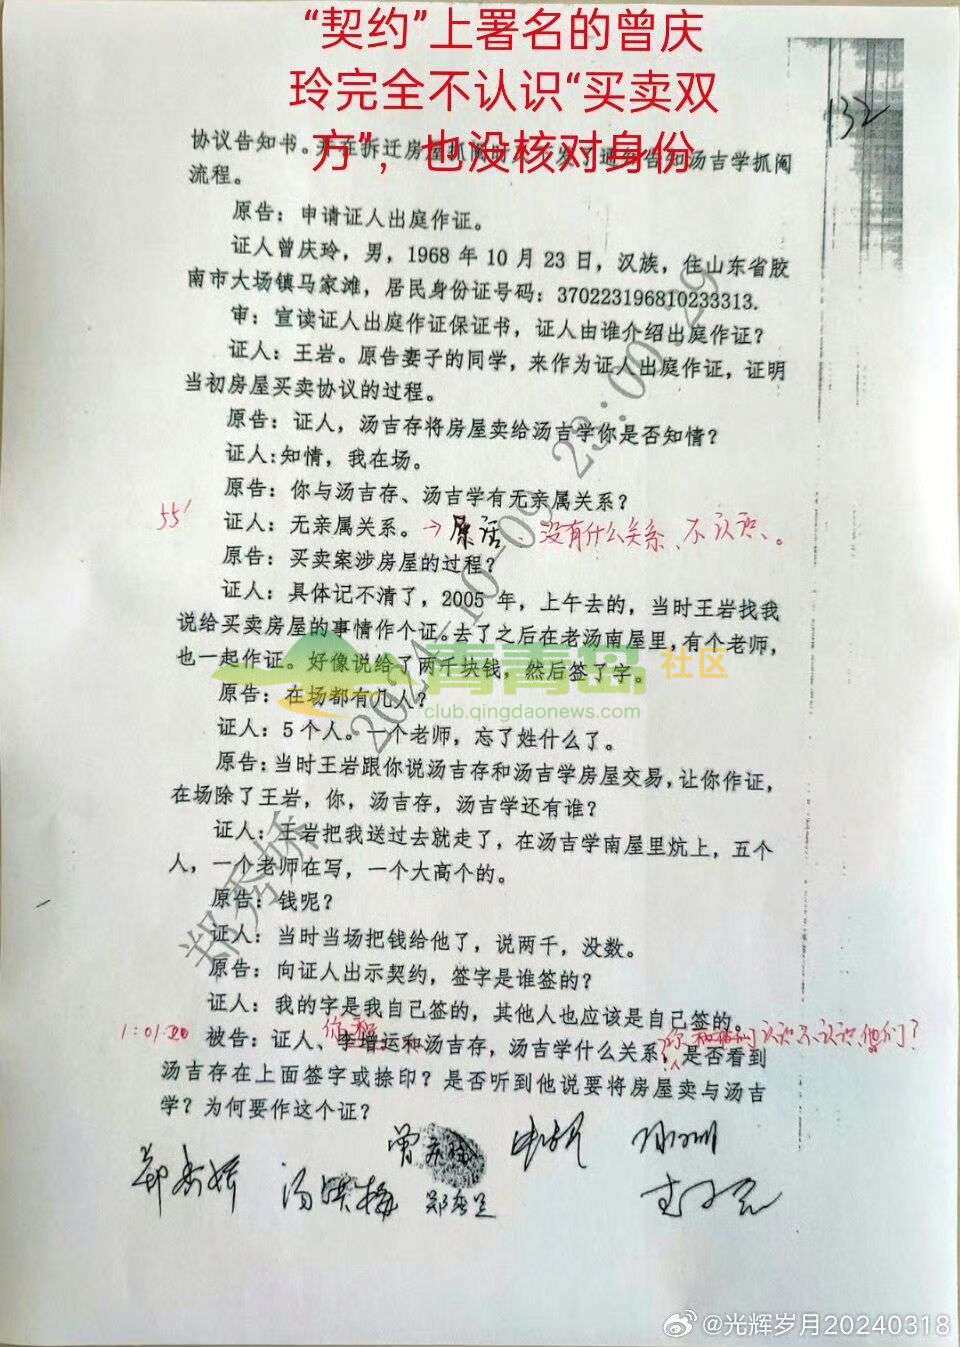 “契约”上署名的曾庆
玲完全不认识“买卖双
方”，也没核对身份
132
协议告知书。并在拆迁房屋抓阄时
告知汤吉学抓阄
流程。
原告：申请证人出庭作证。
证人曾庆玲，男，1968 年 10 月 23 日，汉族，住山东省胶
南市大场镇马家滩，居民身份证号码：370223196810233313.
审：宣读证人出庭作证保证书，证人由谁介绍出庭作证？
证人：王岩。原告妻子的同学，来作为证人出庭作证，证明
当初房屋买卖协议的过程。
原告：证人，汤吉存将房屋卖给汤吉学你是否知情？
证人:知情，我在场。
原告：你与汤吉存、汤吉学有无亲属关系？
55'
证人：无亲属关系。→原话 没有什么关系、不认识。
原告：买卖案涉房屋的过程？
证人：具体记不清了，2005 年，上午去的，当时王岩找我
说给买卖房屋的事情作个证。去了之后在老汤南屋里，有个老师，
也一起作证。好像说给了两千块钱，然后签了字。
青青岛 社区
club.qingdaonews.com
原告：在场都有几人？
证人：5 个人。一个老师，忘了姓什么了。
原告：当时王岩跟你说汤吉存和汤吉学房屋交易，让你作证，
在场除了王岩，你，汤吉存，汤吉学还有谁？
证人：王岩把我送过去就走了，在汤吉学南屋里炕上，五个
人，一个老师在写，一个大高个的。
原告：钱呢？
证人：当时当场把钱给他了，说两千，没数。
原告：向证人出示契约，签字是谁签的？
证人：我的字是我自己签的，其他人也应该是自己签的。
1:01:20
被告：证人、李增运和汤吉存，汤吉学什么关系？是否看到
认识不认识他们？
汤吉存在上面签字或捺印？是否听到他说要将房屋卖与汤吉
学？为何要作这个证？
曾庆玲
郑秀娇
2024-10-09 23:00:29
郑秀娇
@光辉岁月20240318